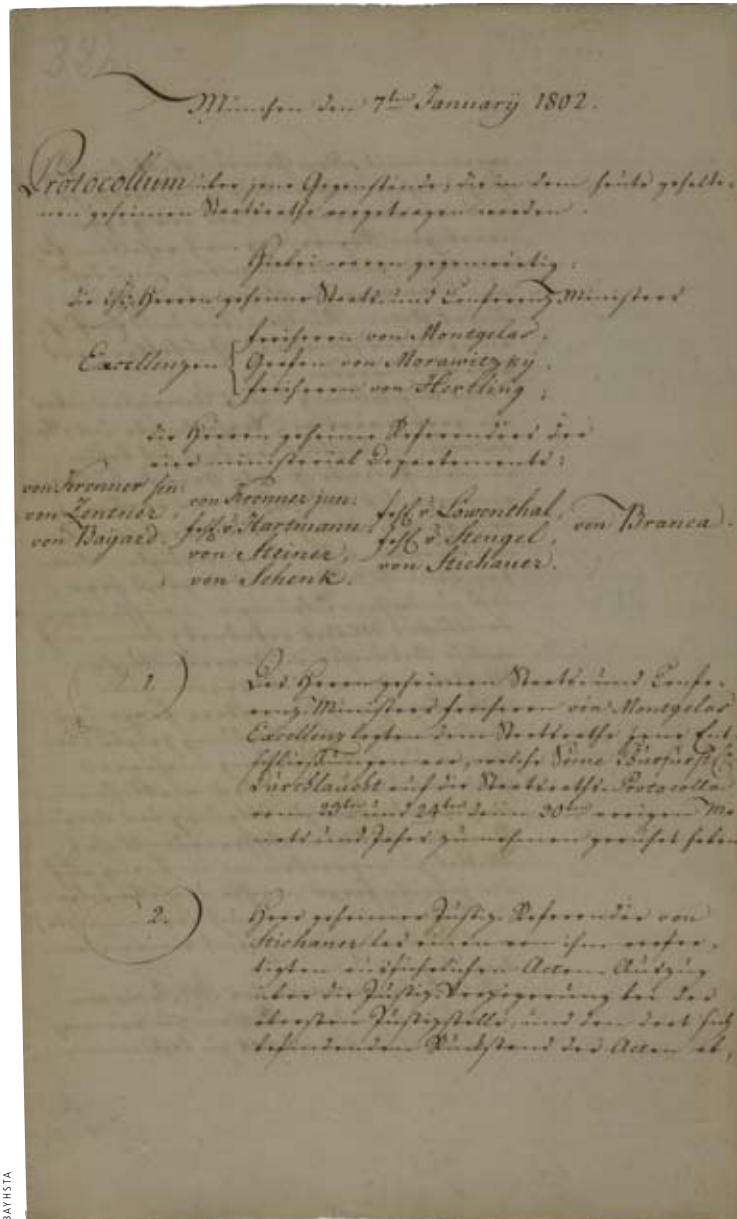 München den 7ten January 1802.
Protocollum über jene Gegenstände, die in dem heute gehalte-
nen geheimen Staatsrathe vorgetragen worden.
Hiebei waren gegenwärtig:
die Herren geheime Staats- und Conferenz-Ministers
Excellenzen
Freiherr von Montgelas,
Grafen von Morawitzky,
Freiherr von Hertling,
die Herren geheime Referendärs der
vier ministerial Departements:
von Krenner sen:
von Zentner,
von Bayard.
von Krenner jun:
frhl. v. Hartmann.
von Steiner,
von Schenk.
frhl. v. Löwenthal,
frhl. v. Stengel,
von Stichaner.
von Branca.
1.)
Des Herrn geheimen Staats- und Confe-
renz-Ministers Freiherrn von Montgelas
Excellenz legten dem Staatsrathe jene Ent-
schließungen vor, welche Seine Churfürstl:
Durchlaucht auf die Staatsraths-Protocolle
vom 23ten und 24ten dann 30ten vorigen Mo-
nats und Jahrs zu nehmen geruhet haben
2.)
Herr geheimer Justiz-Referendär von
Stichaner las einen von ihm verfer-
tigten ausführlichen Acten-Auszug
über die Justiz-Verzögerung bei der
obersten Justizstelle, und den dort sich
befindenden Rückstand der Acten ab,
BAYHSTA